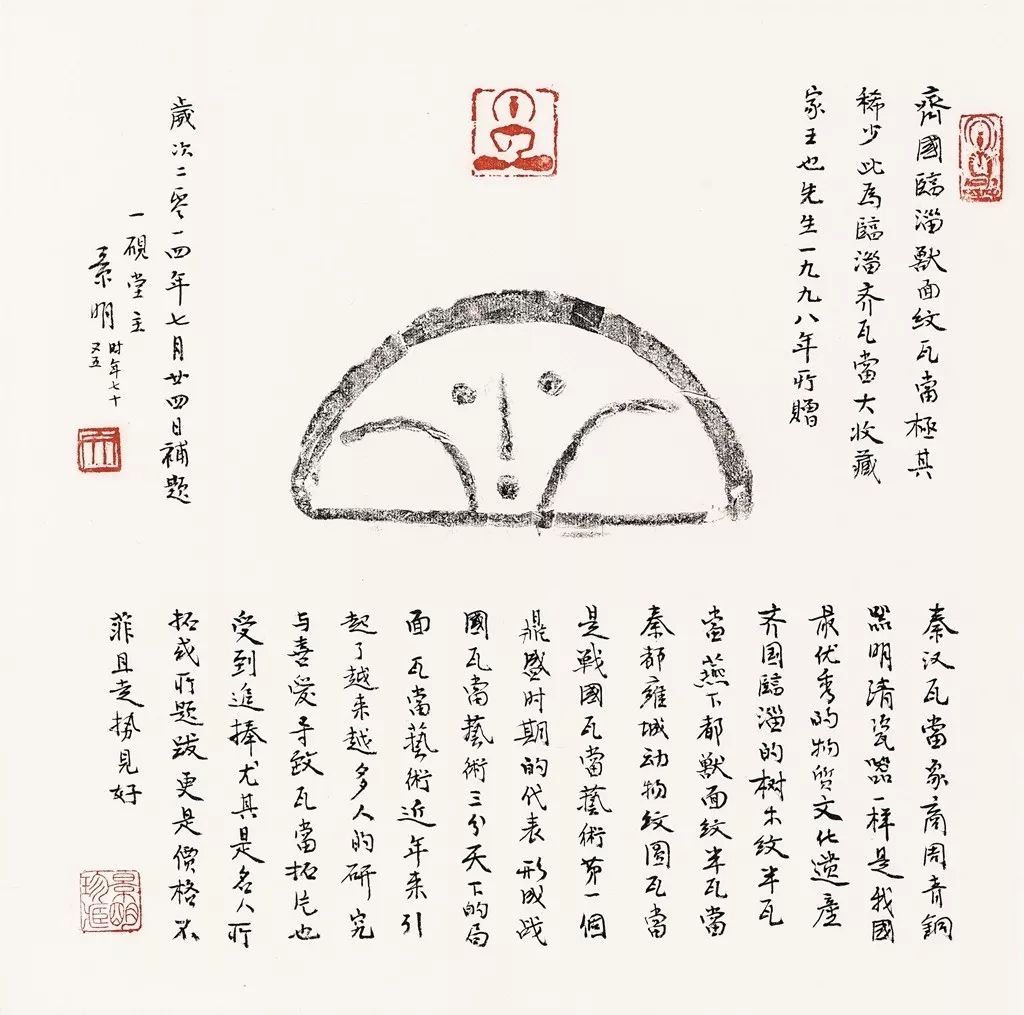 齊國臨淄獸面紋瓦當極其
稀少此爲臨淄齐瓦當大收藏
家王也先生一九九八年所贈
歲次二零一四年七月廿四日補題
一硯堂主
景明
时年七十
又五
秦汉瓦當象商周青銅
器明清瓷器一样是我國
最优秀的物质文化遗産
齐国臨淄的树木紋半瓦
當燕下都獸面紋半瓦當
秦都雍城动物纹圆瓦當
是戰國瓦當藝術第一個
鼎盛时期的代表形成战
國瓦當藝術三分天下的局
面瓦當藝術近年来引
起了越来越多人的研究
与喜愛导致瓦當拓片也
受到追捧尤其是名人所
拓或所题跋更是價格不
菲且走势見好
景明
珍藏